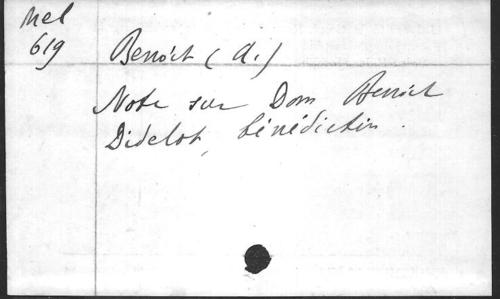 Mel
619
Benoit (A.)
Note sur Dom Benoit
Didelot, bénédictin.